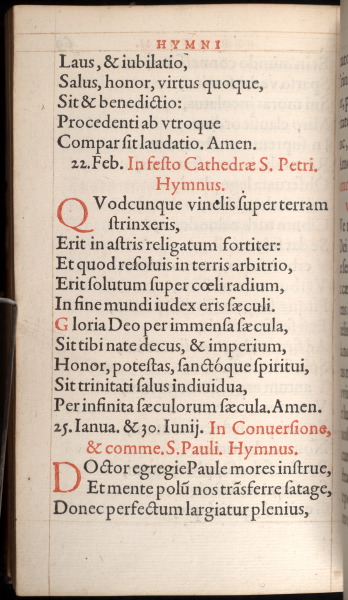 HYMNI
Laus, & iubilatio,
Salus, honor, virtus quoque,
Sit & benedictio:
Procedenti ab vtroque
Compar ſit laudatio. Amen.
22. Feb. In feſto Cathedræ S. Petri.
Hymnus.
QVodcunque vinclis ſuper terram
ſtrinxeris,
Erit in aſtris religatum fortiter:
Et quod reſoluis in terris arbitrio,
Erit ſolutum ſuper cœli radium,
In fine mundi iudex eris ſæculi.
Gloria Deo per immenſa ſæcula,
Sit tibi nate decus, & imperium,
Honor, poteſtas, ſanctóque ſpiritui,
Sit trinitati ſalus indiuidua,
Per infinita ſæculorum ſæcula. Amen.
25. Ianua. & 30. Iunij. In Conuerſione,
& comme. S. Pauli. Hymnus.
DOctor egregie Paule mores inſtrue,
Et mente polũ nos trãſferre ſatage,
Donec perfectum largiatur plenius,